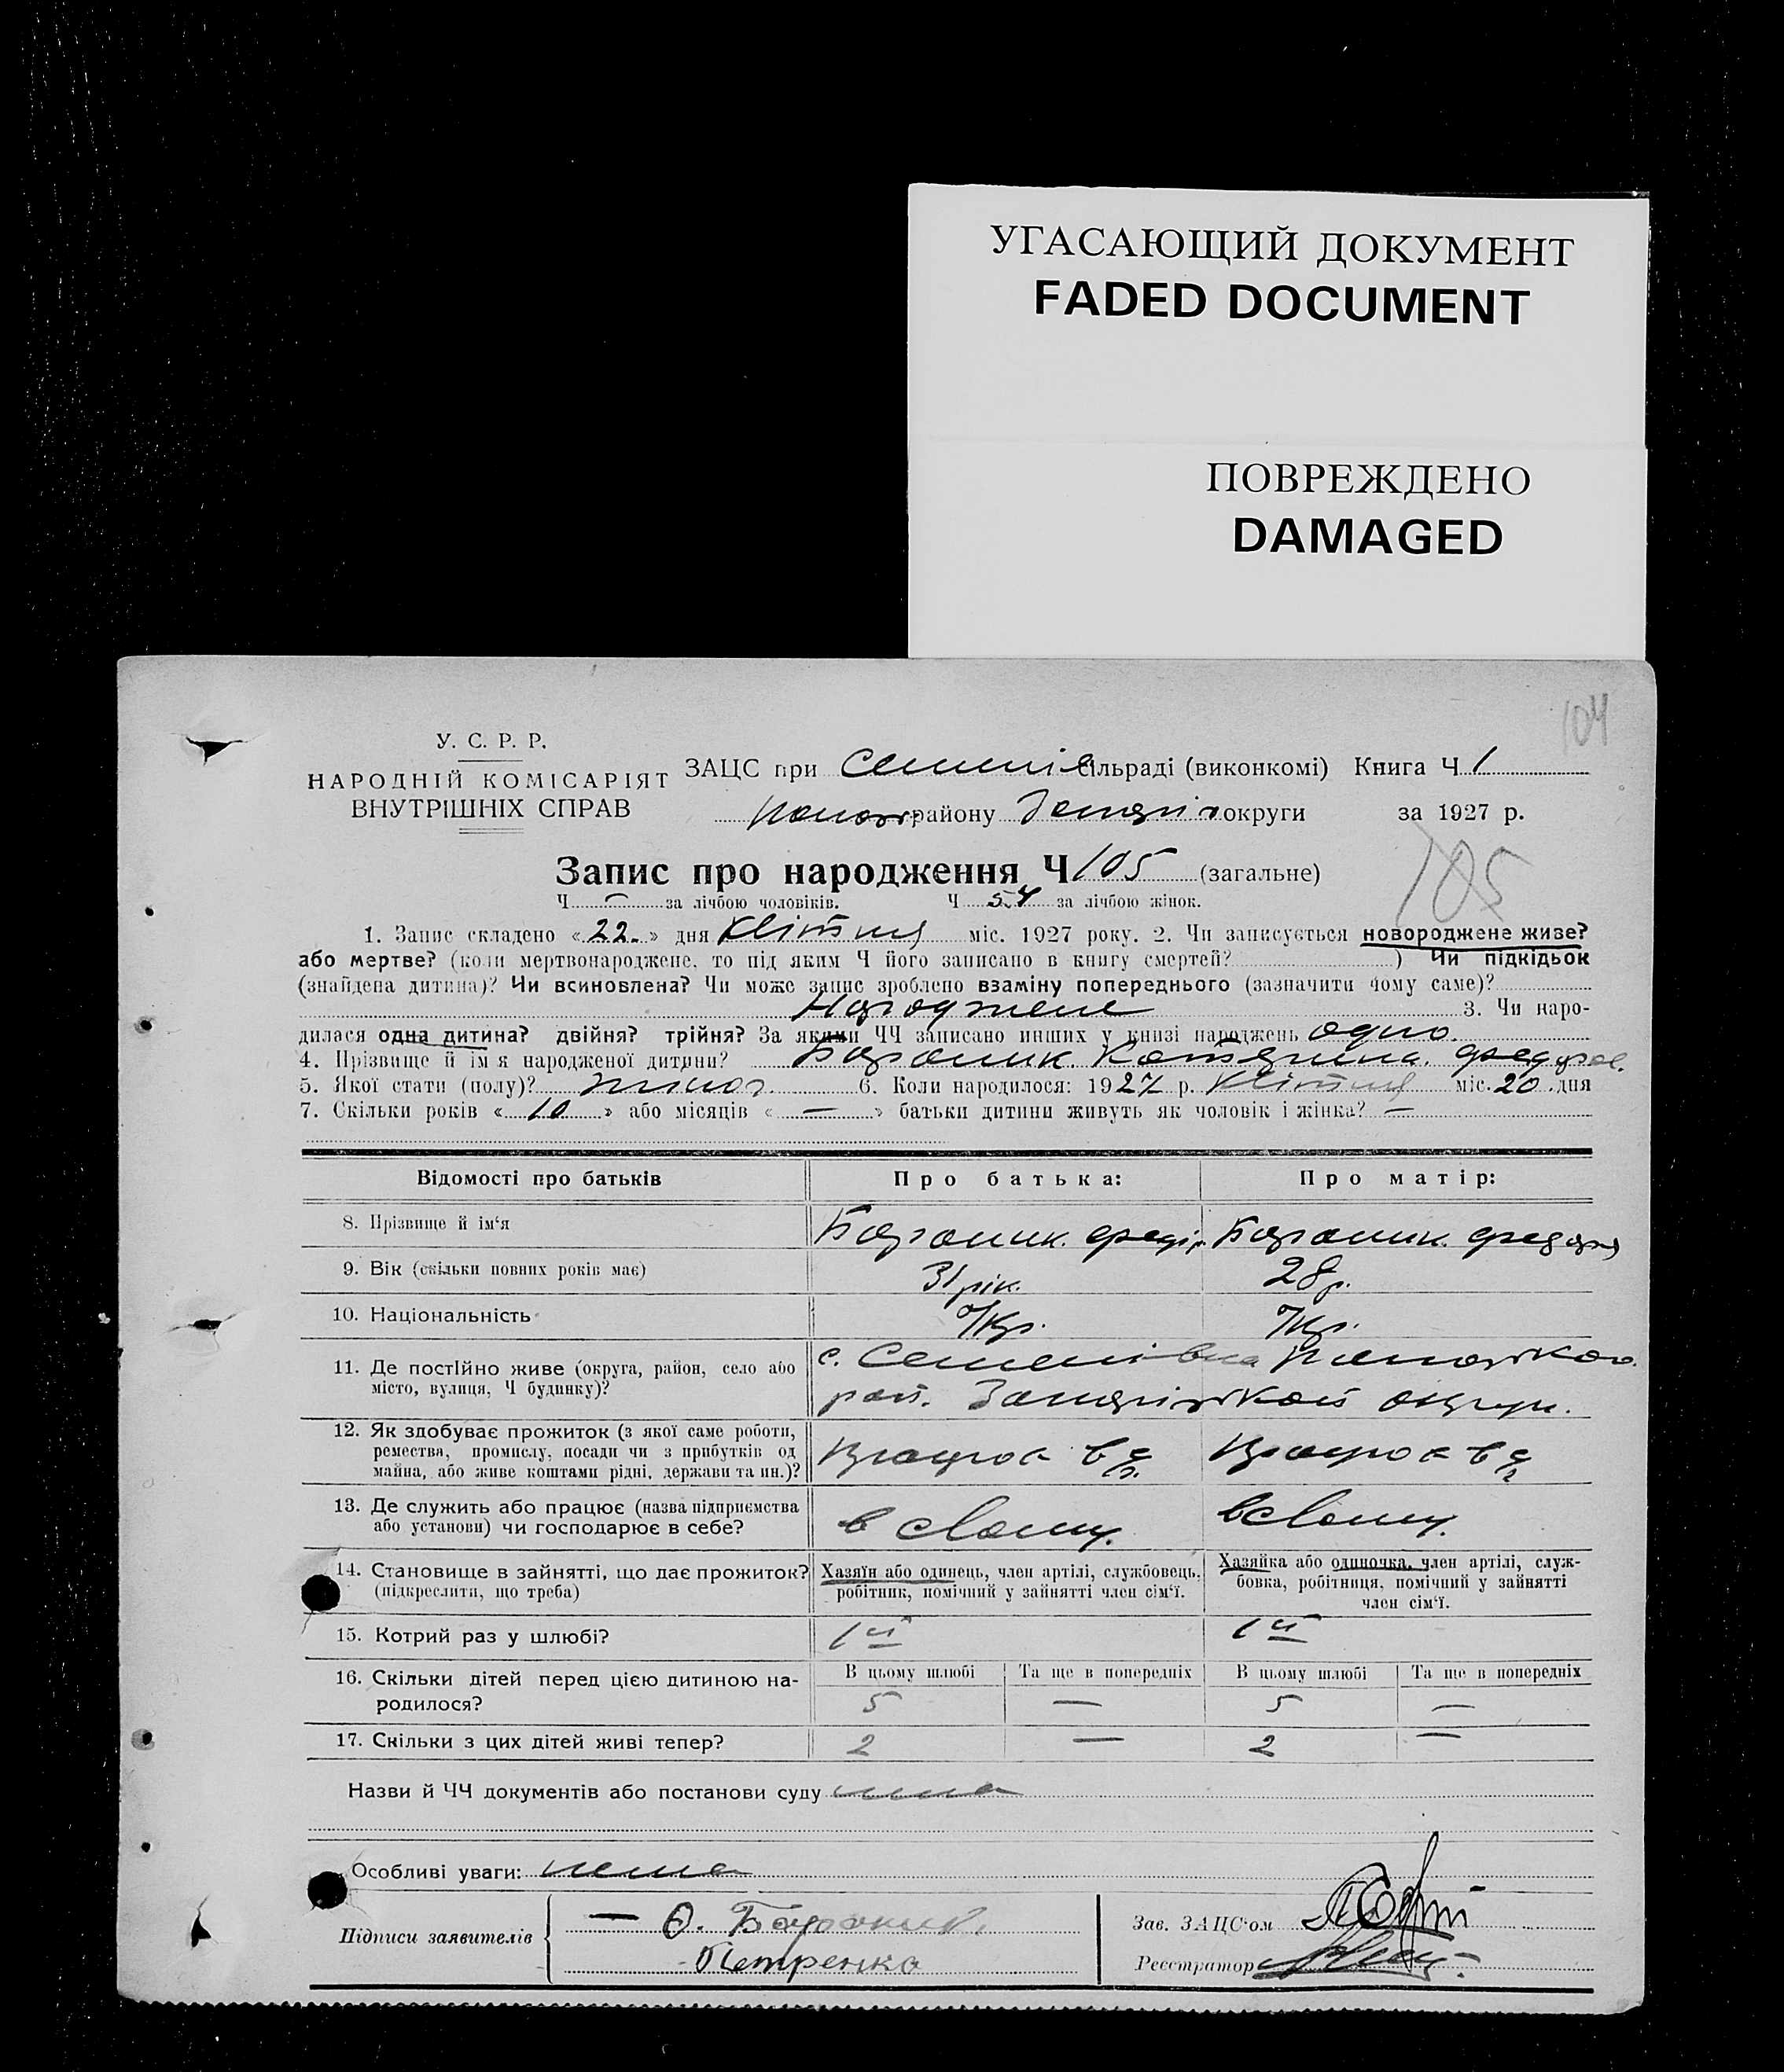 УГАСАЮЩИЙ ДОКУМЕНТ
FADED DOCUMENT
ПОВРЕЖДЕНО
DAMAGED
104
У. С. Р. Р.
НАРОДНІЙ КОМІСАРІЯТ
ВНУТРІШНІХ СПРАВ
ЗАЦС при сільраді (виконкомі) Книга Ч 1
району округи за 1927 р.
Запис про народження Ч 105 (загальне)
105
Ч. — за лічбою чоловіків. Ч 54 за лічбою жінок.
1. Запис складено «22.» дня Квітня міс. 1927 року. 2. Чи записується новороджене живе?
або мертве? (коли мертвонароджене, то під яким Ч його записано в книгу смертей? ) Чи підкідьок
(знайдена дитина)? Чи всиновлена? Чи може запис зроблено взаміну попереднього (зазначити чому саме)?
Народжене 3. Чи наро-
дилася одна дитина? двійня? трійня? За якими ЧЧ записано инших у книзі народжень одно.
4. Прізвище й ім'я народженої дитини? Бараник. Катерина.
5. Якої статі (полу)? жіноч. 6. Коли народилося: 1927 р. Квітня міс. 20 дня
7. Скільки років «10» або місяців «—» батьки дитини живуть як чоловік і жінка? —
Відомості про батьків Про батька: Про матір:
8. Прізвище й ім'я Бараник. Федір Бараник.
9. Вік (скільки повних років має) 31 рік. 28 р.
10. Національність Укр. Укр.
11. Де постійно живе (округа, район, село або
місто, вулиця, Ч будинку)?
с. Семенівка
рай. округи.
12. Як здобуває прожиток (з якої саме роботи,
ремества, промислу, посади чи з прибутків од
майна, або живе коштами рідні, держави та ин.)?
13. Де служить або працює (назва підприємства
або установи) чи господарює в себе?
в свому. в свому.
14. Становище в зайнятті, що дає прожиток?
(підкреслити, що треба)
Хазяїн або одинець, член артілі, службовець,
робітник, помічний у зайнятті член сім'ї.
Хазяйка або одиночка, член артілі, служ-
бовка, робітниця, помічний у зайнятті
член сім'ї.
15. Котрий раз у шлюбі? 1й 1й
16. Скільки дітей перед цією дитиною на-
родилося?
В цьому шлюбі Та ще в попередніх В цьому шлюбі Та ще в попередніх
5 — 5 —
17. Скільки з цих дітей живі тепер? 2 — 2 —
Назви й ЧЧ документів або постанови суду нема
Особливі уваги: нема
Підписи заявителів
— Ф. Бараник.
Петренко
Зав. ЗАЦС'ом
Реєстратор